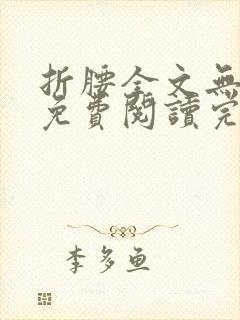 折腰全文無
免費閱讀完
李多鱼